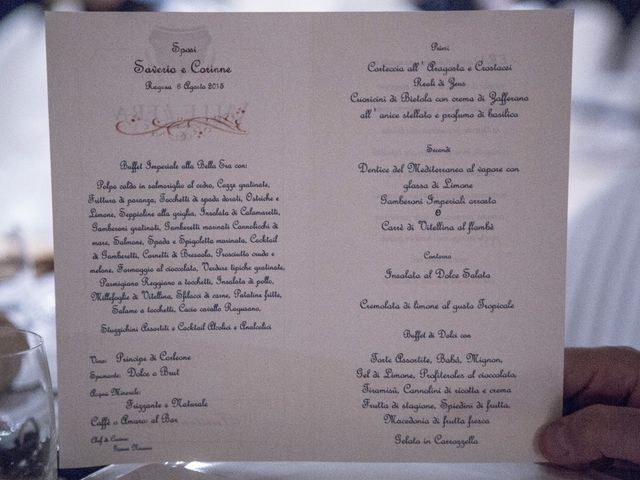 Sposi
Saverio e Corinne
Ragusa 6 Agosto 2015
Buffet Imperiale alla Bella Era con:
Polpo caldo in salmoriglio al cedro, Cozze gratinate,
Frittura di paranza, Tocchetti di spada dorati, Ostriche e
Limone, Seppioline alla griglia, Insalata di Calamaretti,
Gamberoni gratinati, Gamberetti marinati Cannolicchi di
mare, Salmone, Spada e Spigoletta marinata, Cocktail
di Gamberetti, Cornetti di Bresaola, Prosciutto crudo e
melone, Formaggio al cioccolato, Verdure tipiche gratinate,
Parmigiano Reggiano a tocchetti, Insalata di pollo,
Millefoglie di Vitellina, Sfilacci di carne, Patatine fritte,
Salame a tocchetti, Cacio cavallo Ragusano,
Stuzzichini Assortiti e Cocktail Alcolici e Analcolici
Vino: Principe di Corleone
Spumante: Dolce e Brut
Acqua Minerale:
Frizzante e Naturale
Caffè o Amaro: al Bar
Chef di Cucina:
Primi
Corteccia all' Aragosta e Crostacei
Reali di Zeus
Cuoricini di Bietola con crema di Zafferano
all' anice stellato e profumo di basilico
Secondi
Dentice del Mediterraneo al vapore con
glassa di Limone
Gamberoni Imperiali arrosto
O
Carrè di Vitellina al flambè
Contorno
Insalata al Dolce Salata
Cremolata di limone al gusto Tropicale
Buffet di Dolci con
Torte Assortite, Babà, Mignon,
Gel di Limone, Profiteroles al cioccolato,
Tiramisù, Cannolini di ricotta e crema
Frutta di stagione, Spiedini di frutta,
Macedonia di frutta fresca
Gelato in Carrozzella